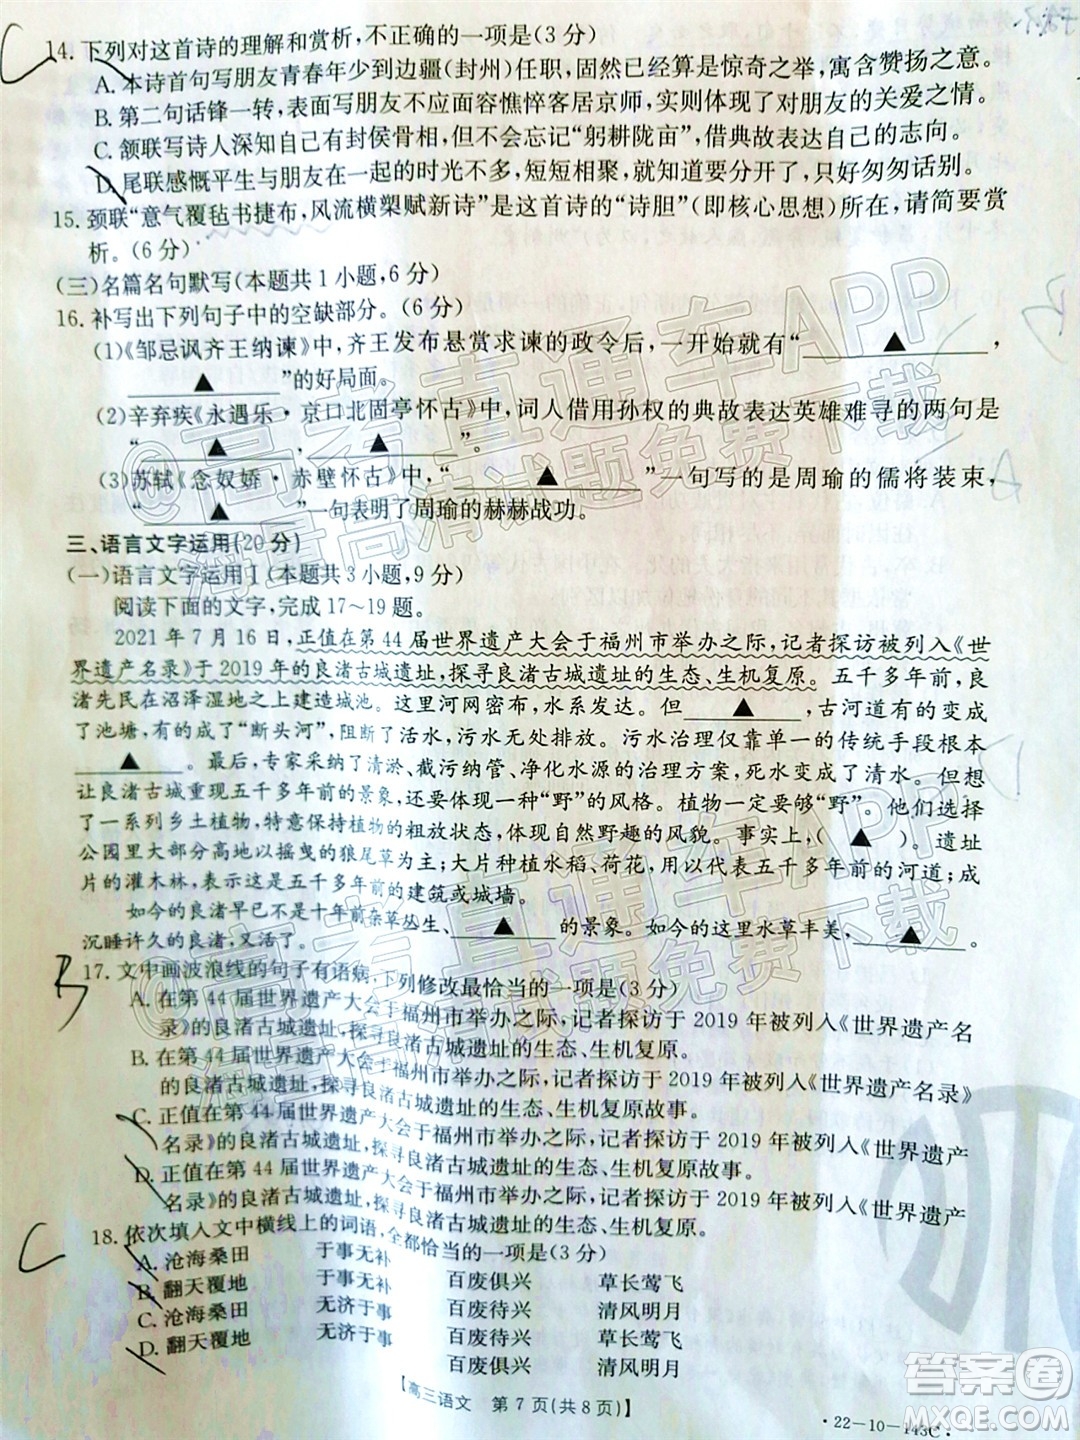 14. 下列对这首诗的理解和赏析,不正确的一项是(3 分)
A. 本诗首句写朋友青春年少到边疆(封州)任职,固然已经算是惊奇之举,寓含赞扬之意。
B. 第二句话锋一转,表面写朋友不应面容憔悴客居京师,实则体现了对朋友的关爱之情。
C. 颔联写诗人深知自己有封侯骨相,但不会忘记“躬耕陇亩”,借典故表达自己的志向。
D. 尾联感慨平生与朋友在一起的时光不多,短短相聚,就要分开了,只好匆匆话别。
15. 颈联“意气覆毡书捷布,风流横槊赋新诗”是这首诗的“诗胆”(即核心思想)所在,请简要赏
析。(6 分)
(三)名篇名句默写(本题共 1 小题,6 分)
16. 补写出下列句子中的空缺部分。(6 分)
(1)《邹忌讽齐王纳谏》中,齐王发布悬赏求谏的政令后,一开始就有“ ▲ ,
▲ ”的好局面。
(2) 辛弃疾《永遇乐·京口北固亭怀古》中,词人借用孙权的典故表达英雄难寻的两句是
“ ▲ , ▲ ”。
(3) 苏轼《念奴娇·赤壁怀古》中,“ ▲ ”一句写的是周瑜的儒将装束,
“ ▲ ”一句表明了周瑜的赫赫战功。
三、语言文字运用(20 分)
(一)语言文字运用Ⅰ(本题共 3 小题,9 分)
阅读下面的文字,完成 17～19 题。
2021 年 7 月 16 日,正值在第 44 届世界遗产大会于福州市举办之际,记者探访被列入《世
界遗产名录》于 2019 年的良渚古城遗址,探寻良渚古城遗址的生态、生机复原。五千多年前,良
渚先民在沼泽湿地之上建造城池。这里河网密布,水系发达。但 ▲ ,古河道有的变成
了池塘,有的成了“断头河”,下游断了活水,污水无处排放。污水治理仅靠单一的传统手段根本
▲ 。最后,专家采纳了清淤、截污纳管、净化水源的治理方案,死水变成了清水。然后,
让良渚古城重现五千多年前的景象,才能体现一种“野”的风格。植物一定要够“野”,他们选择
了一系列乡土植物,特意保持植物的粗放状态,体现自然野趣的风貌。事实上,( ▲ )。遗址
公园里大部分高地以摇曳的狼尾草为主;大片种植水稻、荷花,用以代表五千多年前的河道;成
片的灌木林,表示五千多年前的建筑或城墙。
如今的良渚早已不是十年前杂草丛生、 ▲ 的景象。如今的这里水草丰美, ▲ 。
沉睡许久的良渚,又活了。
17. 文中画波浪线的句子有语病,下列修改最恰当的一项是(3 分)
A. 在第 44 届世界遗产大会于福州市举办之际,记者探访于 2019 年被列入《世界遗产名
录》的良渚古城遗址,探寻良渚古城遗址的生态、生机复原。
B. 在第 44 届世界遗产大会于福州市举办之际,记者探访于 2019 年被列入《世界遗产名录》
的良渚古城遗址,探寻良渚古城遗址的生态、生机复原故事。
C. 正值在第 44 届世界遗产大会于福州市举办之际,记者探访于 2019 年被列入《世界遗产
名录》的良渚古城遗址,探寻良渚古城遗址的生态、生机复原故事。
D. 正值在第 44 届世界遗产大会于福州市举办之际,记者探访于 2019 年被列入《世界遗产
名录》的良渚古城遗址,探寻良渚古城遗址的生态、生机复原。
18. 依次填入文中横线上的词语,全都恰当的一项是(3 分)
A. 沧海桑田 于事无补 百废俱兴 草长莺飞
B. 翻天覆地 于事无补 百废待兴 清风明月
C. 沧海桑田 无济于事 百废待兴 草长莺飞
D. 翻天覆地 无济于事 百废俱兴 清风明月
【高三语文 第 7 页(共 8 页)】
·22-10-143C·
C
B
C
@高考直通车APP
海量高清试题免费下载
@高考直通车APP
答案圈
MXQE.COM